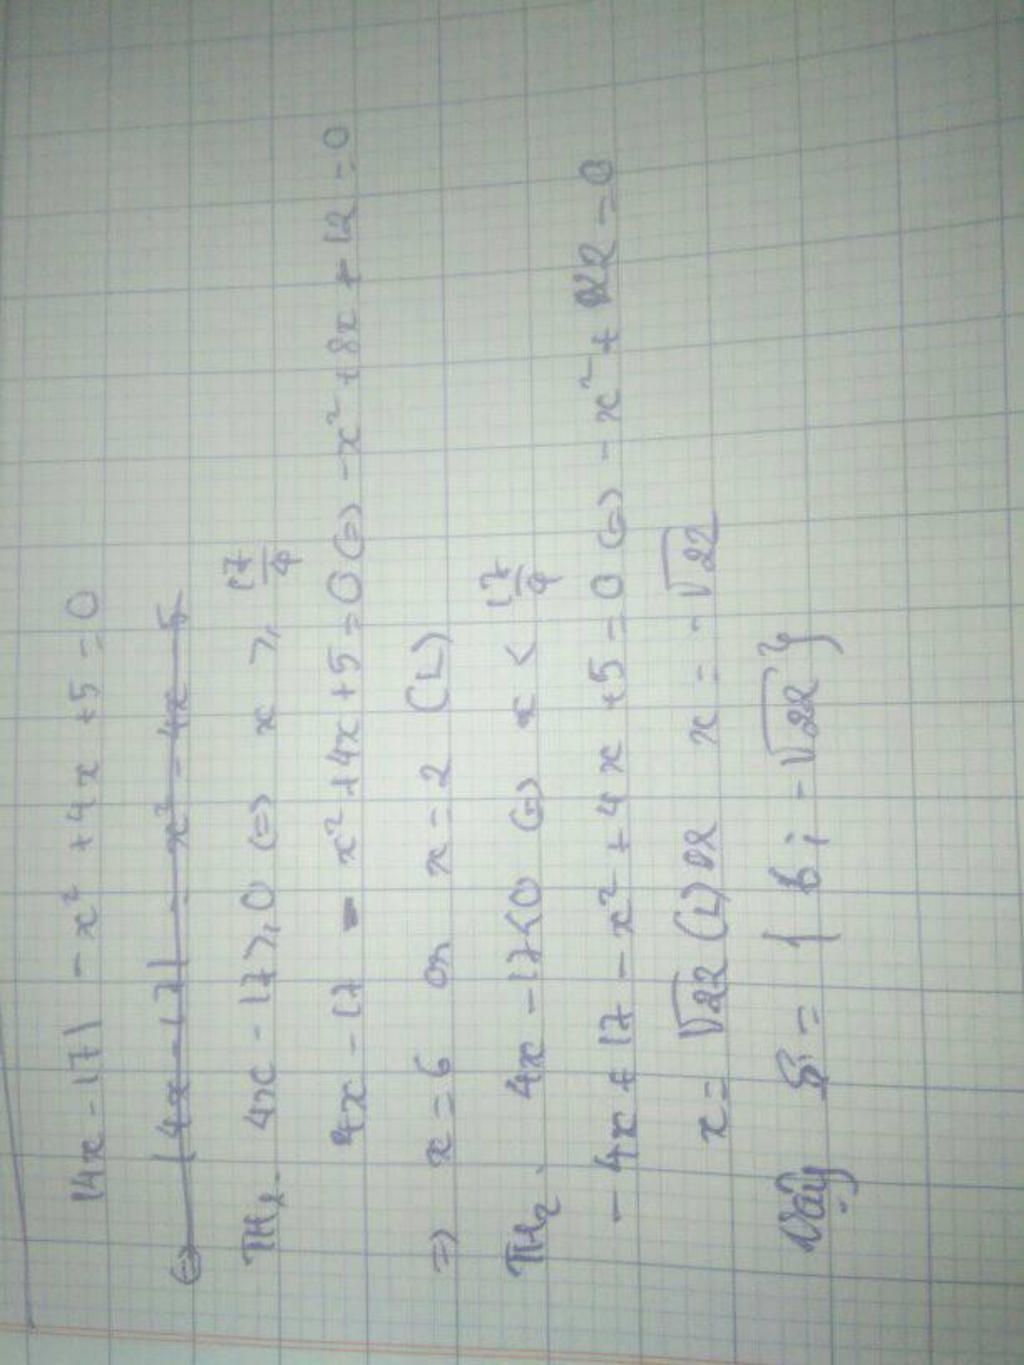 |4x - 17| - x² + 4x + 5 = 0
⇔ |4x - 17| = x² - 4x - 5
TH1. 4x - 17 ≥ 0 ⇔ x ≥ 17/4
4x - 17 - x² + 4x + 5 = 0 ⇔ -x² + 8x - 12 = 0
⇒ x = 6 or x = 2 (L)
TH2. 4x - 17 < 0 ⇔ x < 17/4
- 4x + 17 - x² + 4x + 5 = 0 ⇔ - x² + 22 = 0
x = √22 (L) or x = - √22
Vậy S = { 6 ; - √22 }